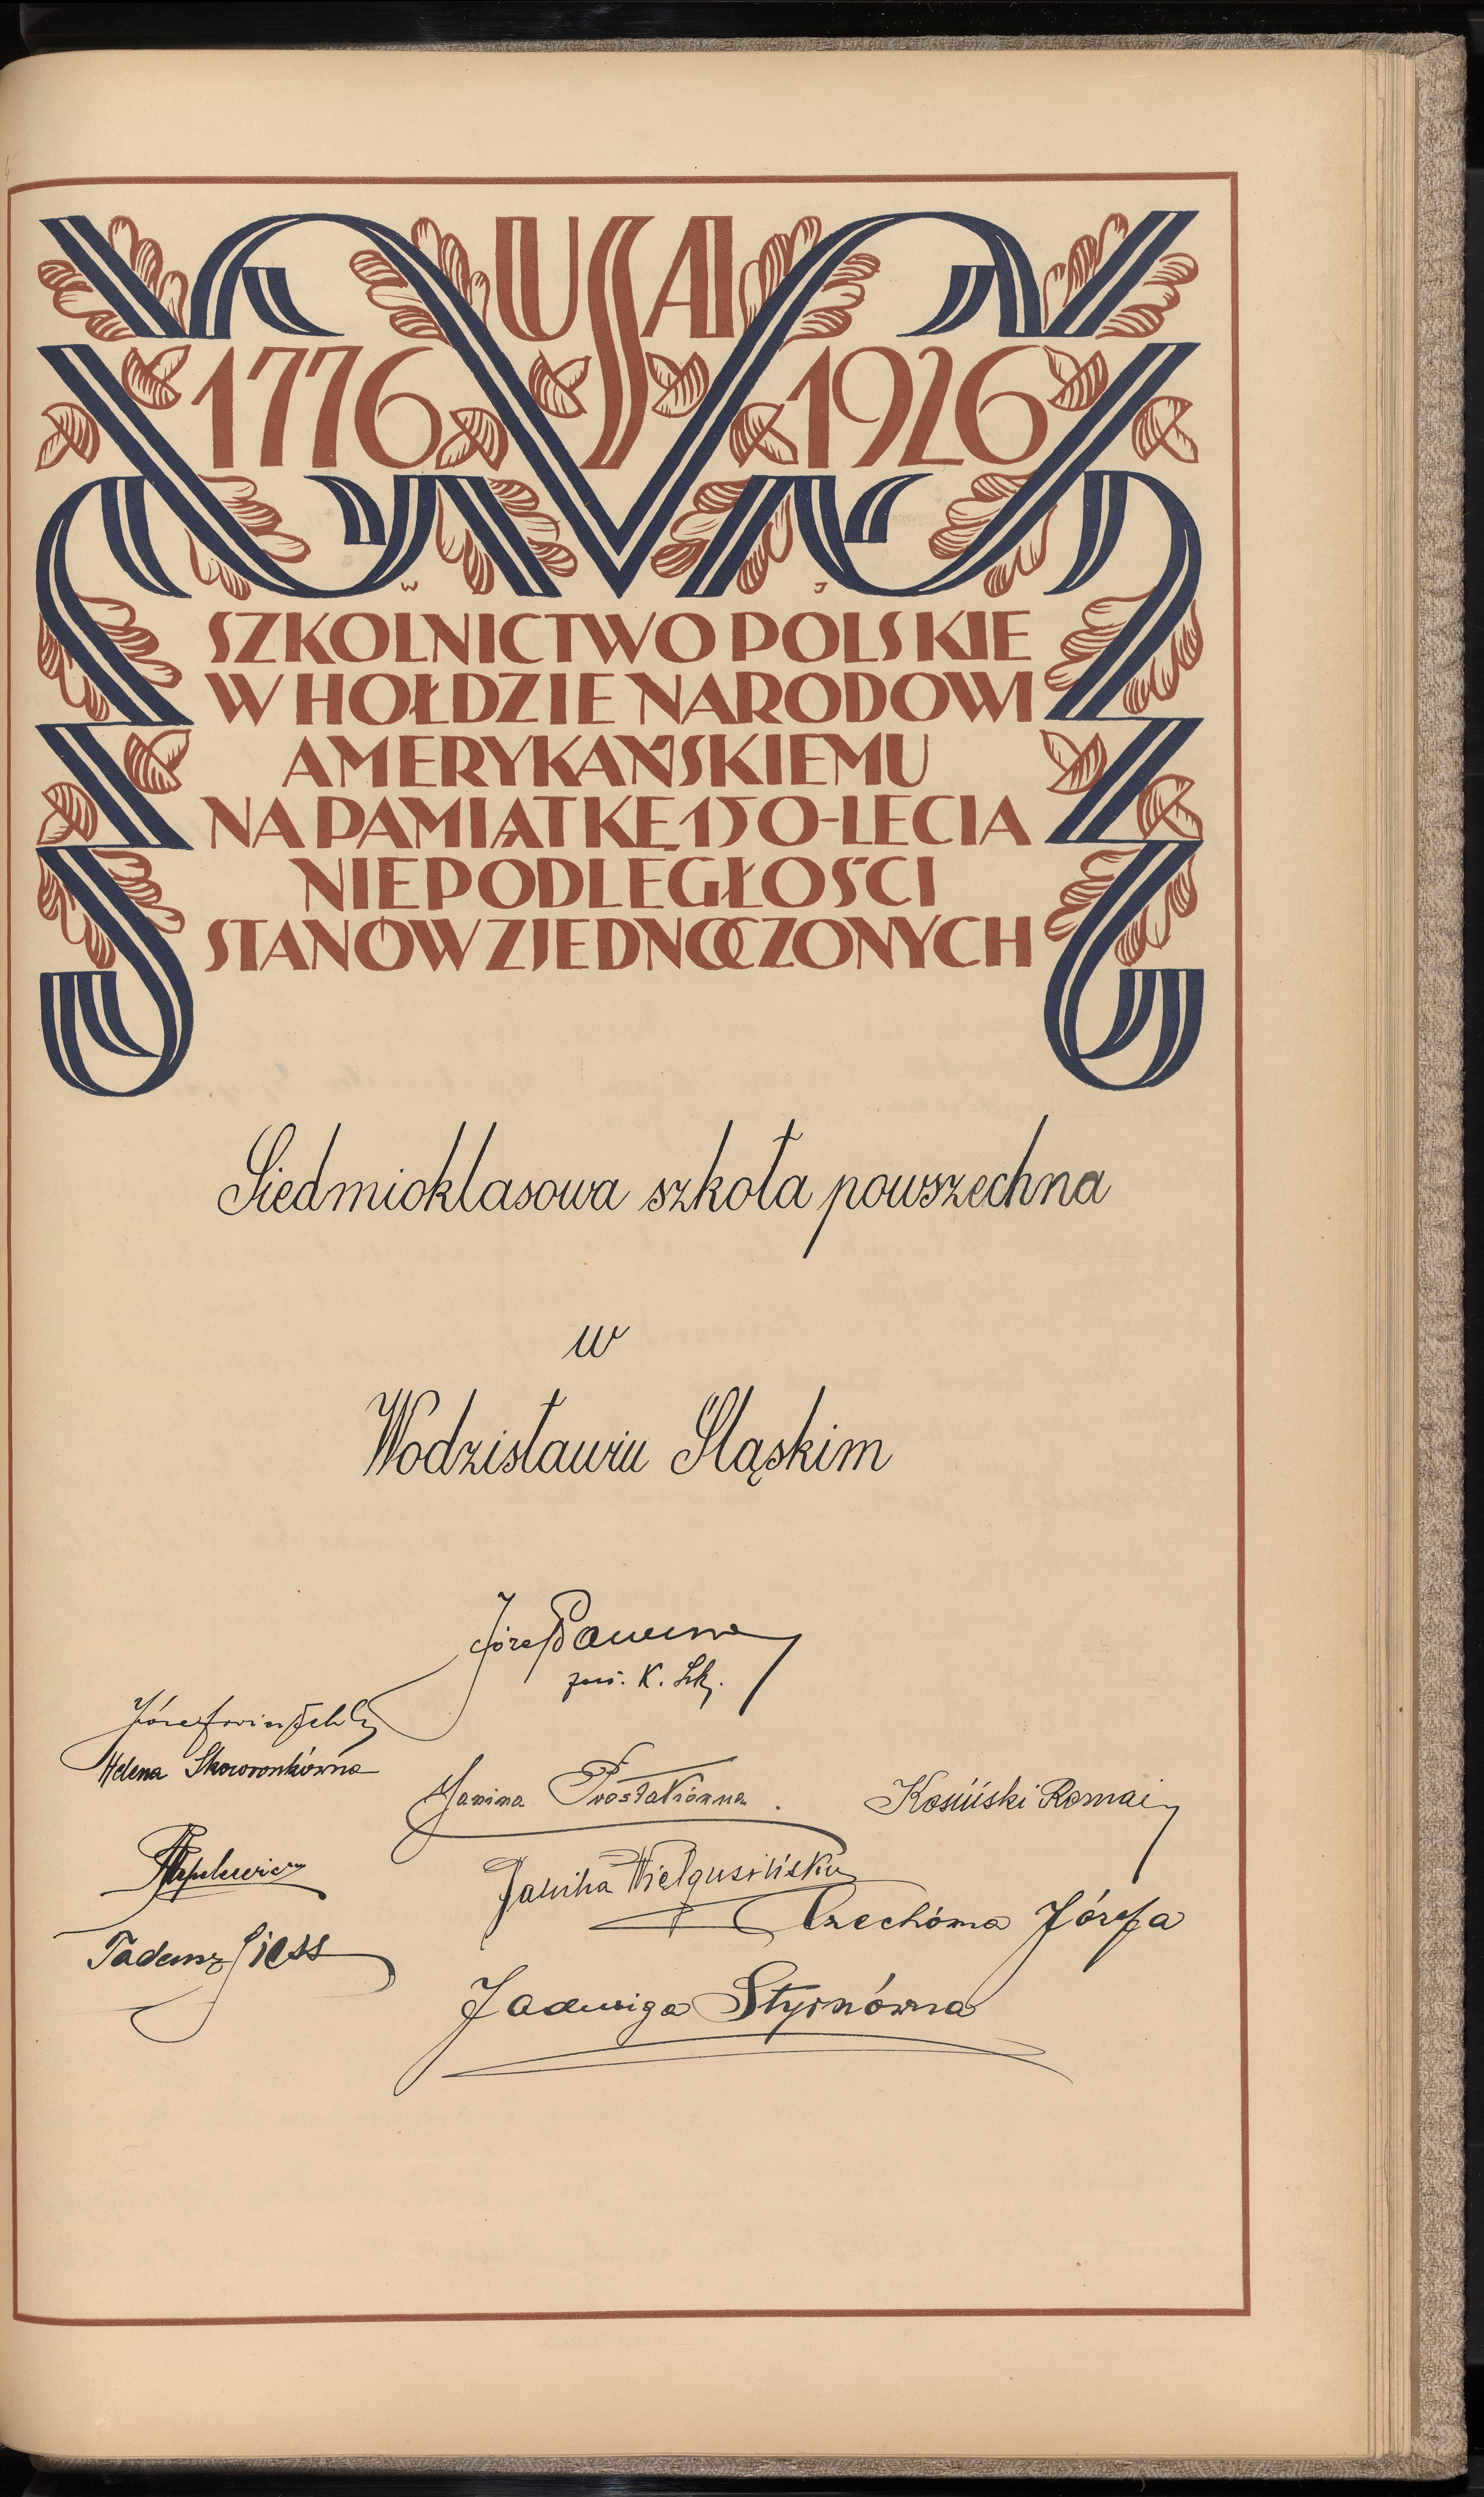 USA
1776 1926
W J
SZKOLNICTWO POLSKIE
W HOŁDZIE NARODOWI
AMERYKAŃSKIEMU
NA PAMIĄTKĘ 150-LECIA
NIEPODLEGŁOŚCI
STANÓW ZJEDNOCZONYCH
Siedmioklasowa szkoła powszechna
w
Wodzisławiu Śląskim
Józef
K.
Józef
Helena Skowronkówna
Janina Prostakówna
Kosiński Roman
Janina
Czechówna Józefa
Tadeusz Giess
Jadwiga Styrnówna